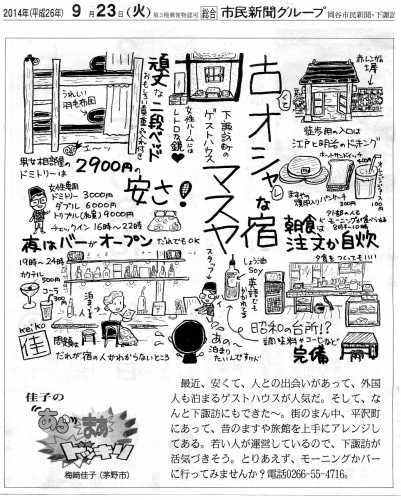 2014年(平成26年) 9月23日(火)
第3種郵便物認可
総合
市民新聞グループ
岡谷市民新聞・下諏訪
うれしい羽毛布団
頑丈な二段ベッド
女性ルームには
レトロな鏡
下諏訪町の
ゲストハウス
古くて
オシャレな宿
マスヤ
男女相部屋の
ドミトリーは
2900円の
安さ!
女性専用
ドミトリー 3000円
ダブル 6000円
トリプル(和室) 9000円
チェックイン 16時〜22時
夜はバーがオープン
だれでもOK
19時〜24時
カクテル
500円
コーラ
300円
スタッフ
しょう油
Soy
英語でもかかれてる
あの〜
泊まりたいんですが
問題は
だれが宿の人かわからないところ
keiko
佳
江戸と明治のドッキング
300円
100円
朝食は
注文か自炊
昭和の台所!?
調味料やコーヒーなど
完備
佳子の
あらまあ
ドッキリ
梅崎佳子(茅野市)
最近、安くて、人との出会いがあって、外国
人も泊まるゲストハウスが人気だ。そして、な
んと下諏訪にもできた〜。街のまん中、平沢町
にあって、昔のますや旅館を上手にアレンジし
てある。若い人が運営しているので、下諏訪が
活気づきそう。とりあえず、モーニングかバー
に行ってみませんか?電話0266-55-4716。